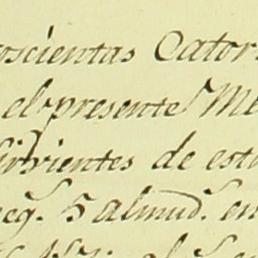 oscientas Cator
el presente Me
Sirvientes de est
eg.s 5 almud.s en